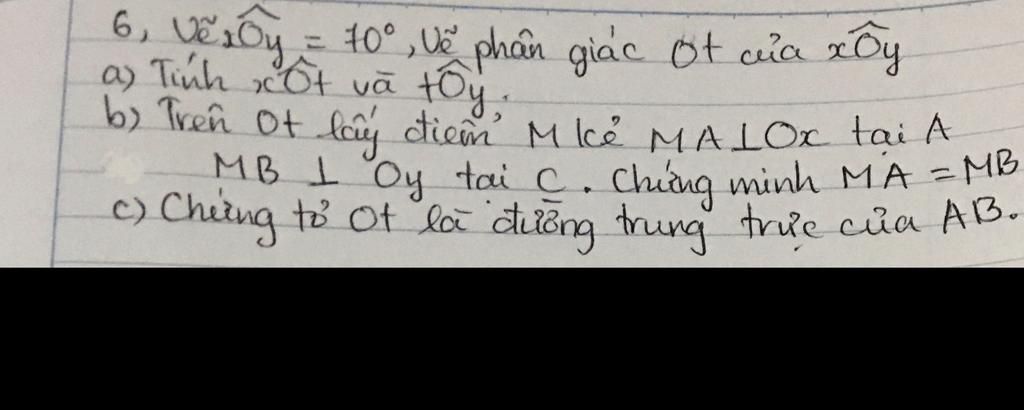 6, Vẽ xÔy = 70°, Vẽ phân giác Ot của xÔy
a) Tính xÔt và tÔy.
b) Trên Ot lấy điểm M kẻ MA⊥Ox tại A
MB ⊥ Oy tại C. Chứng minh MA = MB
c) Chứng tỏ Ot là đường trung trực của AB.